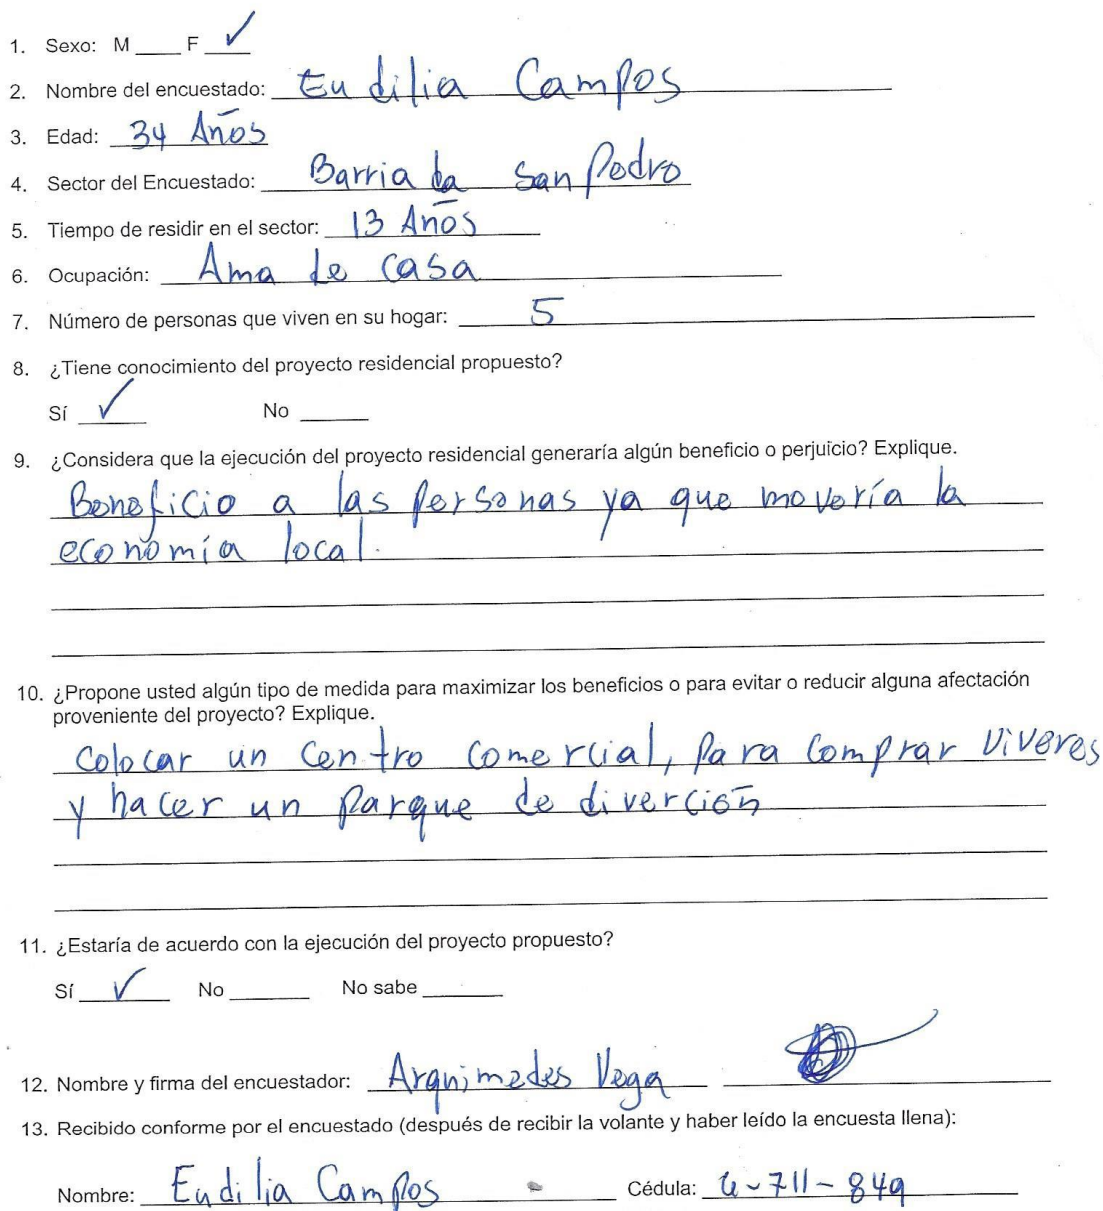 1. Sexo: M ____ F ✓
2. Nombre del encuestado: Eudilia Campos
3. Edad: 34 Años
4. Sector del Encuestado: Barriada San Pedro
5. Tiempo de residir en el sector: 13 Años
6. Ocupación: Ama de casa
7. Número de personas que viven en su hogar: 5
8. ¿Tiene conocimiento del proyecto residencial propuesto?
Sí ✓ No ____
9. ¿Considera que la ejecución del proyecto residencial generaría algún beneficio o perjuicio? Explique.
Beneficio a las personas ya que movería la
economía local.
10. ¿Propone usted algún tipo de medida para maximizar los beneficios o para evitar o reducir alguna afectación
proveniente del proyecto? Explique.
colocar un centro comercial, para comprar viveres
y hacer un parque de diverción
11. ¿Estaría de acuerdo con la ejecución del proyecto propuesto?
Sí ✓ No ____ No sabe ____
12. Nombre y firma del encuestador: Arquimedes Vega
13. Recibido conforme por el encuestado (después de recibir la volante y haber leído la encuesta llena):
Nombre: Eudilia Campos Cédula: 4-711-849